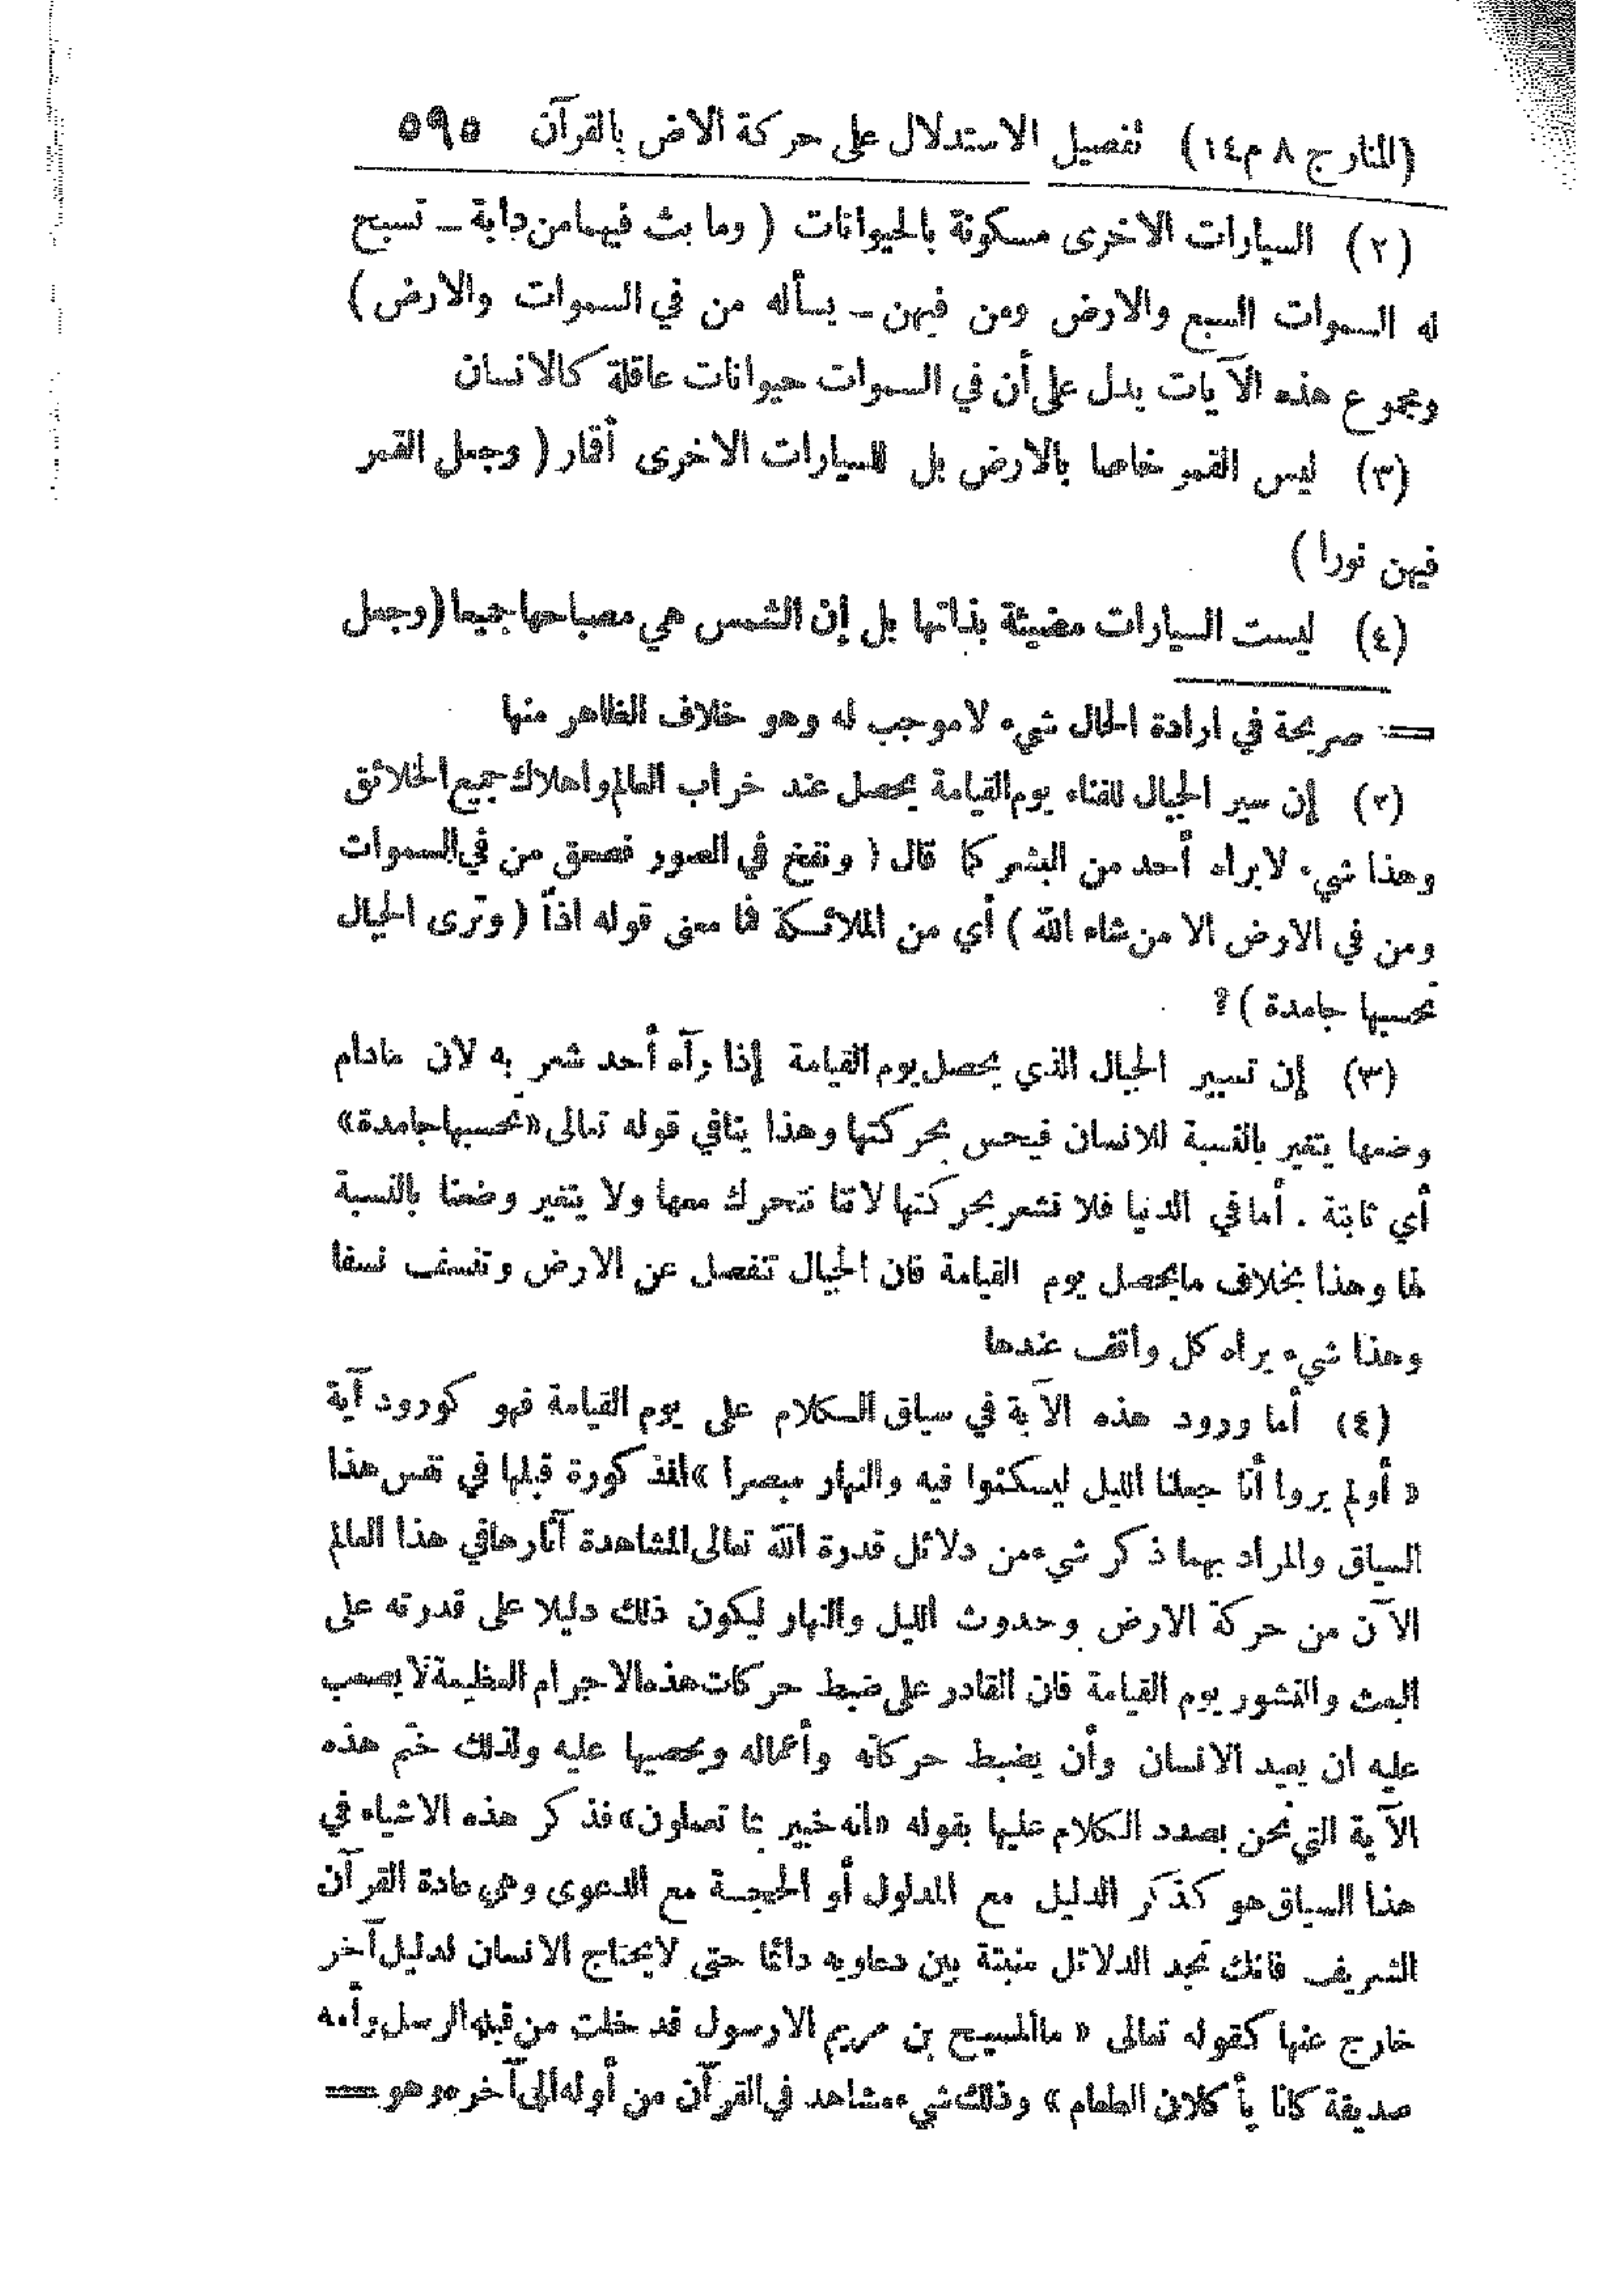 (المنار ج ٨ م ١٤) تفصيل الاستدلال على حركة الارض بالقرآن ٥٩٥
(٢) السيارات الاخرى مسكونة بالحيوانات ( وما بث فيهما من دابة ــ تسبح
له السموات السبع والارض ومن فيهن ــ يسأله من في السموات والارض )
ومجموع هذه الآيات يدل على أن في السموات حيوانات عاقلة كالانسان
(٣) ليس القمر خاصا بالارض بل للسيارات الاخرى أقمار ( وجعل القمر
فيهن نورا )
(٤) ليست السيارات مضيئة بذاتها بل إن الشمس هي مصباحها جميعا (وجعل
= صريحة في ارادة الحال شيء لا موجب له وهو خلاف الظاهر منها
(٢) إن سير الجبال للفناء يوم القيامة يحصل عند خراب العالم واهلاك جميع الخلائق
وهذا شيء لا يراه أحد من البشر كما قال ( ونفخ في الصور فصعق من في السموات
ومن في الارض الا من شاء الله ) أي من الملائكة فما معنى قوله اذاً ( وترى الجبال
تحسبها جامدة ) ?
(٣) إن تسيير الجبال الذي يحصل يوم القيامة إذا رآه أحد شعر به لان مادام
وضعها يتغير بالنسبة للانسان فيحس بحركتها وهذا ينافي قوله تعالى «تحسبها جامدة»
أي ثابتة . أما في الدنيا فلا نشعر بحركتها لاننا نتحرك معها ولا يتغير وضعنا بالنسبة
لها وهذا بخلاف ما يحصل يوم القيامة فان الجبال تنفصل عن الارض وتنسف نسفا
وهذا شيء يراه كل واقف عندها
(٤) أما ورود هذه الآية في سياق الكلام على يوم القيامة فهو كورود آية
« أولم يروا أنا جعلنا الليل ليسكنوا فيه والنهار مبصرا » المذكورة قبلها في نفس هذا
السياق والمراد بهما ذكر شيء من دلائل قدرة الله تعالى المشاهدة آثارها في هذا العالم
الآن من حركة الارض وحدوث الليل والنهار ليكون ذلك دليلا على قدرته على
البعث والنشور يوم القيامة فان القادر على ضبط حركات هذه الاجرام العظيمة لا يصعب
عليه ان يعيد الانسان وأن يضبط حركاته وأعماله ويحصيها عليه ولذلك ختم هذه
الآية التي نحن بصدد الكلام عليها بقوله «انه خبير بما تعملون» فذكر هذه الاشياء في
هذا السياق هو كذكر الدليل مع المدلول أو الحجة مع الدعوى وهي عادة القرآن
الشريف فانك تجد الدلائل منبثة بين دعاويه دائما حتى لا يحتاج الانسان لدليل آخر
خارج عنها كقوله تعالى « ما المسيح بن مريم الا رسول قد خلت من قبله الرسل وأمه
صديقة كانا يأكلان الطعام » وذلك شيء مشاهد في القرآن من أوله الى آخره وهو =